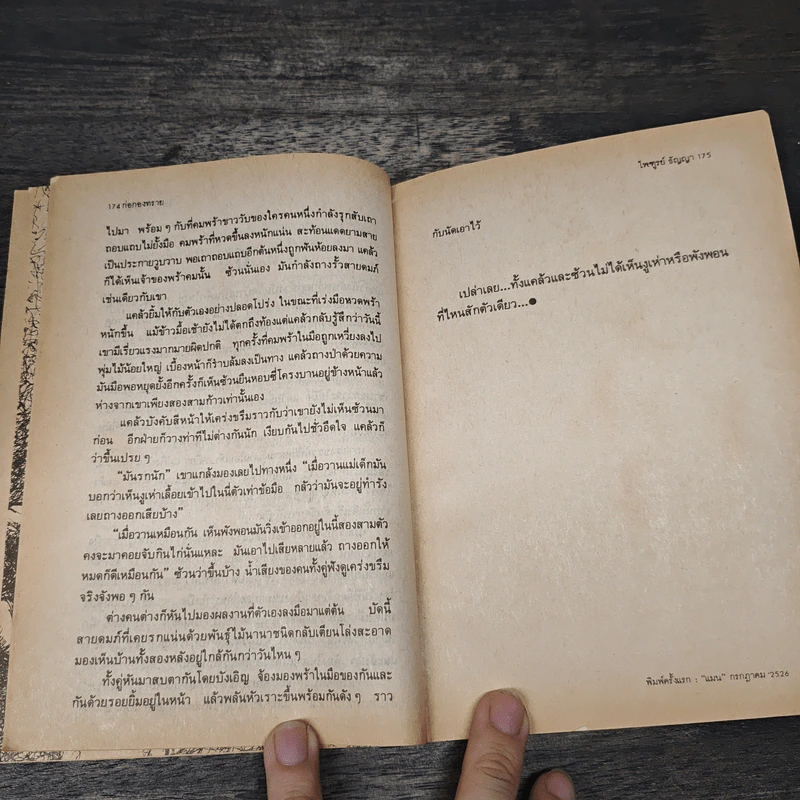 174 ก่อกองทราย
ไปมา พร้อม ๆ กับที่คมพร้าขาววับของใครคนหนึ่งกำลังรุกสับเถา
ถอบแถบไม่ยั้งมือ คมพร้าที่หวดขึ้นลงหนักแน่น สะท้อนแดดยามสาย
เป็นประกายวูบวาบ พอเถาถอบแถบอีกต้นหนึ่งถูกฟันห้อยลงมา แคล้ว
ก็ได้เห็นเจ้าของพร้าคมนั้น ซ้วนนั่นเอง มันกำลังถางรั้วสายดมภ์
เช่นเดียวกับเขา
แคล้วยิ้มให้กับตัวเองอย่างปลอดโปร่ง ในขณะที่เร่งมือหวดพร้า
หนักขึ้น แม้ข้าวมื้อเช้ายังไม่ได้ตกถึงท้องแต่แคล้วกลับรู้สึกว่าวันนี้
เขามีเรี่ยวแรงมากมายผิดปกติ ทุกครั้งที่คมพร้าในมือถูกเหวี่ยงลงไป
พุ่มไม้น้อยใหญ่ เบื้องหน้าก็ราบล้มลงเป็นทาง แคล้วถางป่าด้วยความ
มันมือพอหยุดยั้งอีกครั้งก็เห็นซ้วนยืนหอบซี่โครงบานอยู่ข้างหน้าแล้ว
ห่างจากเขาเพียงสองสามก้าวเท่านั้นเอง
แคล้วบังคับสีหน้าให้เคร่งขรึมราวกับว่าเขายังไม่เห็นซ้วนมา
ก่อน อีกฝ่ายก็วางท่าทีไม่ต่างกันนัก เงียบกันไปชั่วอึดใจ แคล้วก็
ว่าขึ้นเปรย ๆ
“มันรกนัก” เขาแกล้งมองเลยไปทางหนึ่ง “เมื่อวานแม่เด็กมัน
บอกว่าเห็นงูเห่าเลื้อยเข้าไปในนี้ตัวเท่าข้อมือ กลัวว่ามันจะอยู่ทำรัง
เลยถางออกเสียบ้าง”
“เมื่อวานเหมือนกัน เห็นพังพอนมันวิ่งเข้าออกอยู่ในนี้สองสามตัว
คงจะมาคอยจับกินไก่นั่นแหละ มันเอาไปเสียหลายแล้ว ถางออกให้
หมดก็ดีเหมือนกัน” ซ้วนว่าขึ้นบ้าง น้ำเสียงของคนทั้งคู่ฟังดูเคร่งขรึม
จริงจังพอ ๆ กัน
ต่างคนต่างก็หันไปมองผลงานที่ตัวเองลงมือมาแต่ต้น บัดนี้
สายดมภ์ที่เคยรกแน่นด้วยพันธุ์ไม้นานาชนิดกลับเตียนโล่งสะอาด
มองเห็นบ้านทั้งสองหลังอยู่ใกล้กันกว่าวันไหน ๆ
ทั้งคู่หันมาสบตากันโดยบังเอิญ จ้องมองพร้าในมือของกันและ
กันด้วยรอยยิ้มอยู่ในหน้า แล้วพลันหัวเราะขึ้นพร้อมกันดัง ๆ ราว
ไพฑูรย์ ธัญญา 175
กับนัดเอาไว้
เปล่าเลย...ทั้งแคล้วและซ้วนไม่ได้เห็นงูเห่าหรือพังพอน
ที่ไหนสักตัวเดียว...●
พิมพ์ครั้งแรก : “แมน” กรกฎาคม ’2526